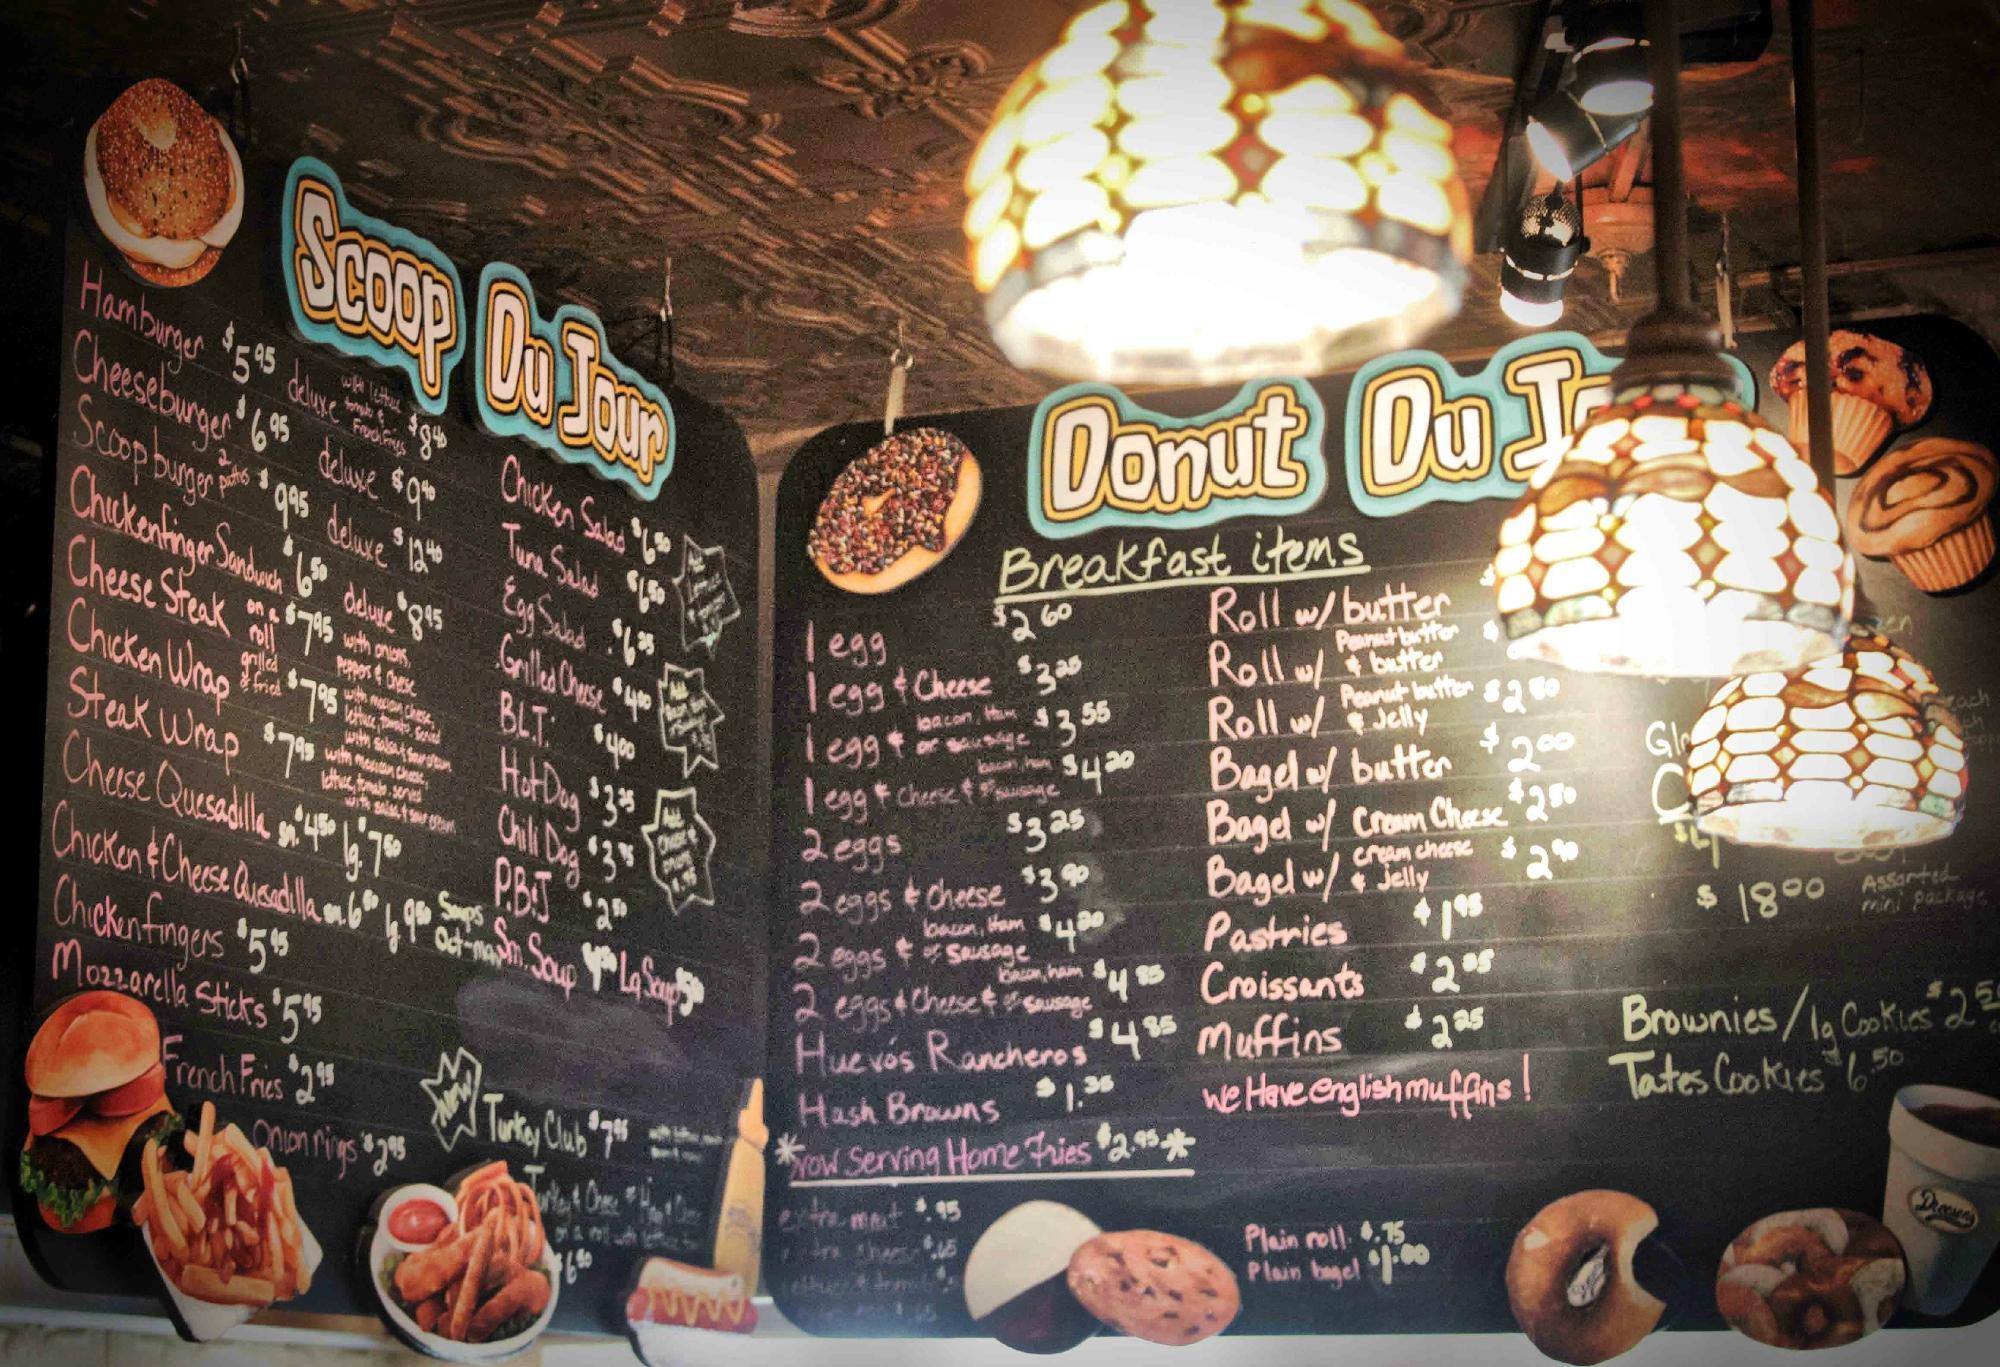 Scoop Du Jour
Hamburger $5.95 deluxe with lettuce tomato & French Fries $8.40
Cheeseburger $6.95 deluxe $9.40
Scoop burger 2 patties $9.95 deluxe $12.40
Chickenfinger Sandwich $6.50 deluxe $8.95
Cheese Steak on a roll $7.95 with onions, peppers & cheese
Chicken Wrap grilled or fried $7.95 with mexican cheese, lettuce, tomato, served with salsa & sour cream
Steak Wrap $7.95 with mexican cheese, lettuce, tomato served with salsa & sour cream
Cheese Quesadilla sm. $4.50 lg. $7.50
Chicken & Cheese Quesadilla sm. 6.50 lg 9.50
Chickenfingers $5.95
Mozzarella Sticks $5.95
French Fries $2.95
Onion rings $2.95
Chicken Salad $6.50
Tuna Salad $6.50
Egg Salad $6.25
Grilled Cheese $4.00
B.L.T. $4.00
Hot Dog $3.25
Chili Dog $3.75
P.B.J $2.50
Soups Oct-May Sm. Soup Lg Soup
Add
Add
Add cheese &
NEW
Turkey Club $7.95
Turkey & Cheese
on a roll with lettuce
$6.50
Donut Du
Breakfast items
1 egg $2.60
1 egg & Cheese $3.25
1 egg & bacon, Ham or sausage $3.55
1 egg & cheese & bacon, ham or sausage $4.20
2 eggs $3.25
2 eggs & cheese $3.90
2 eggs & bacon, Ham or Sausage $4.20
2 eggs & Cheese & bacon, ham or sausage $4.85
Huevos Rancheros $4.85
Hash Browns $1.35
*Now Serving Home Fries $2.95*
extra meat $.95
extra cheese $.65
Roll w/ butter
Roll w/ Peanut butter & butter
Roll w/ Peanut butter & Jelly $2.50
Bagel w/ butter $2.00
Bagel w/ Cream Cheese $2.50
Bagel w/ cream cheese & Jelly $2.90
Pastries $1.95
Croissants $2.05
Muffins $2.25
we Have english muffins!
Plain roll $.75
Plain bagel $1.00
$18.00 Assorted mini package
Brownies / lg Cookies $2.50
Tates Cookies $6.50
Dreesen's